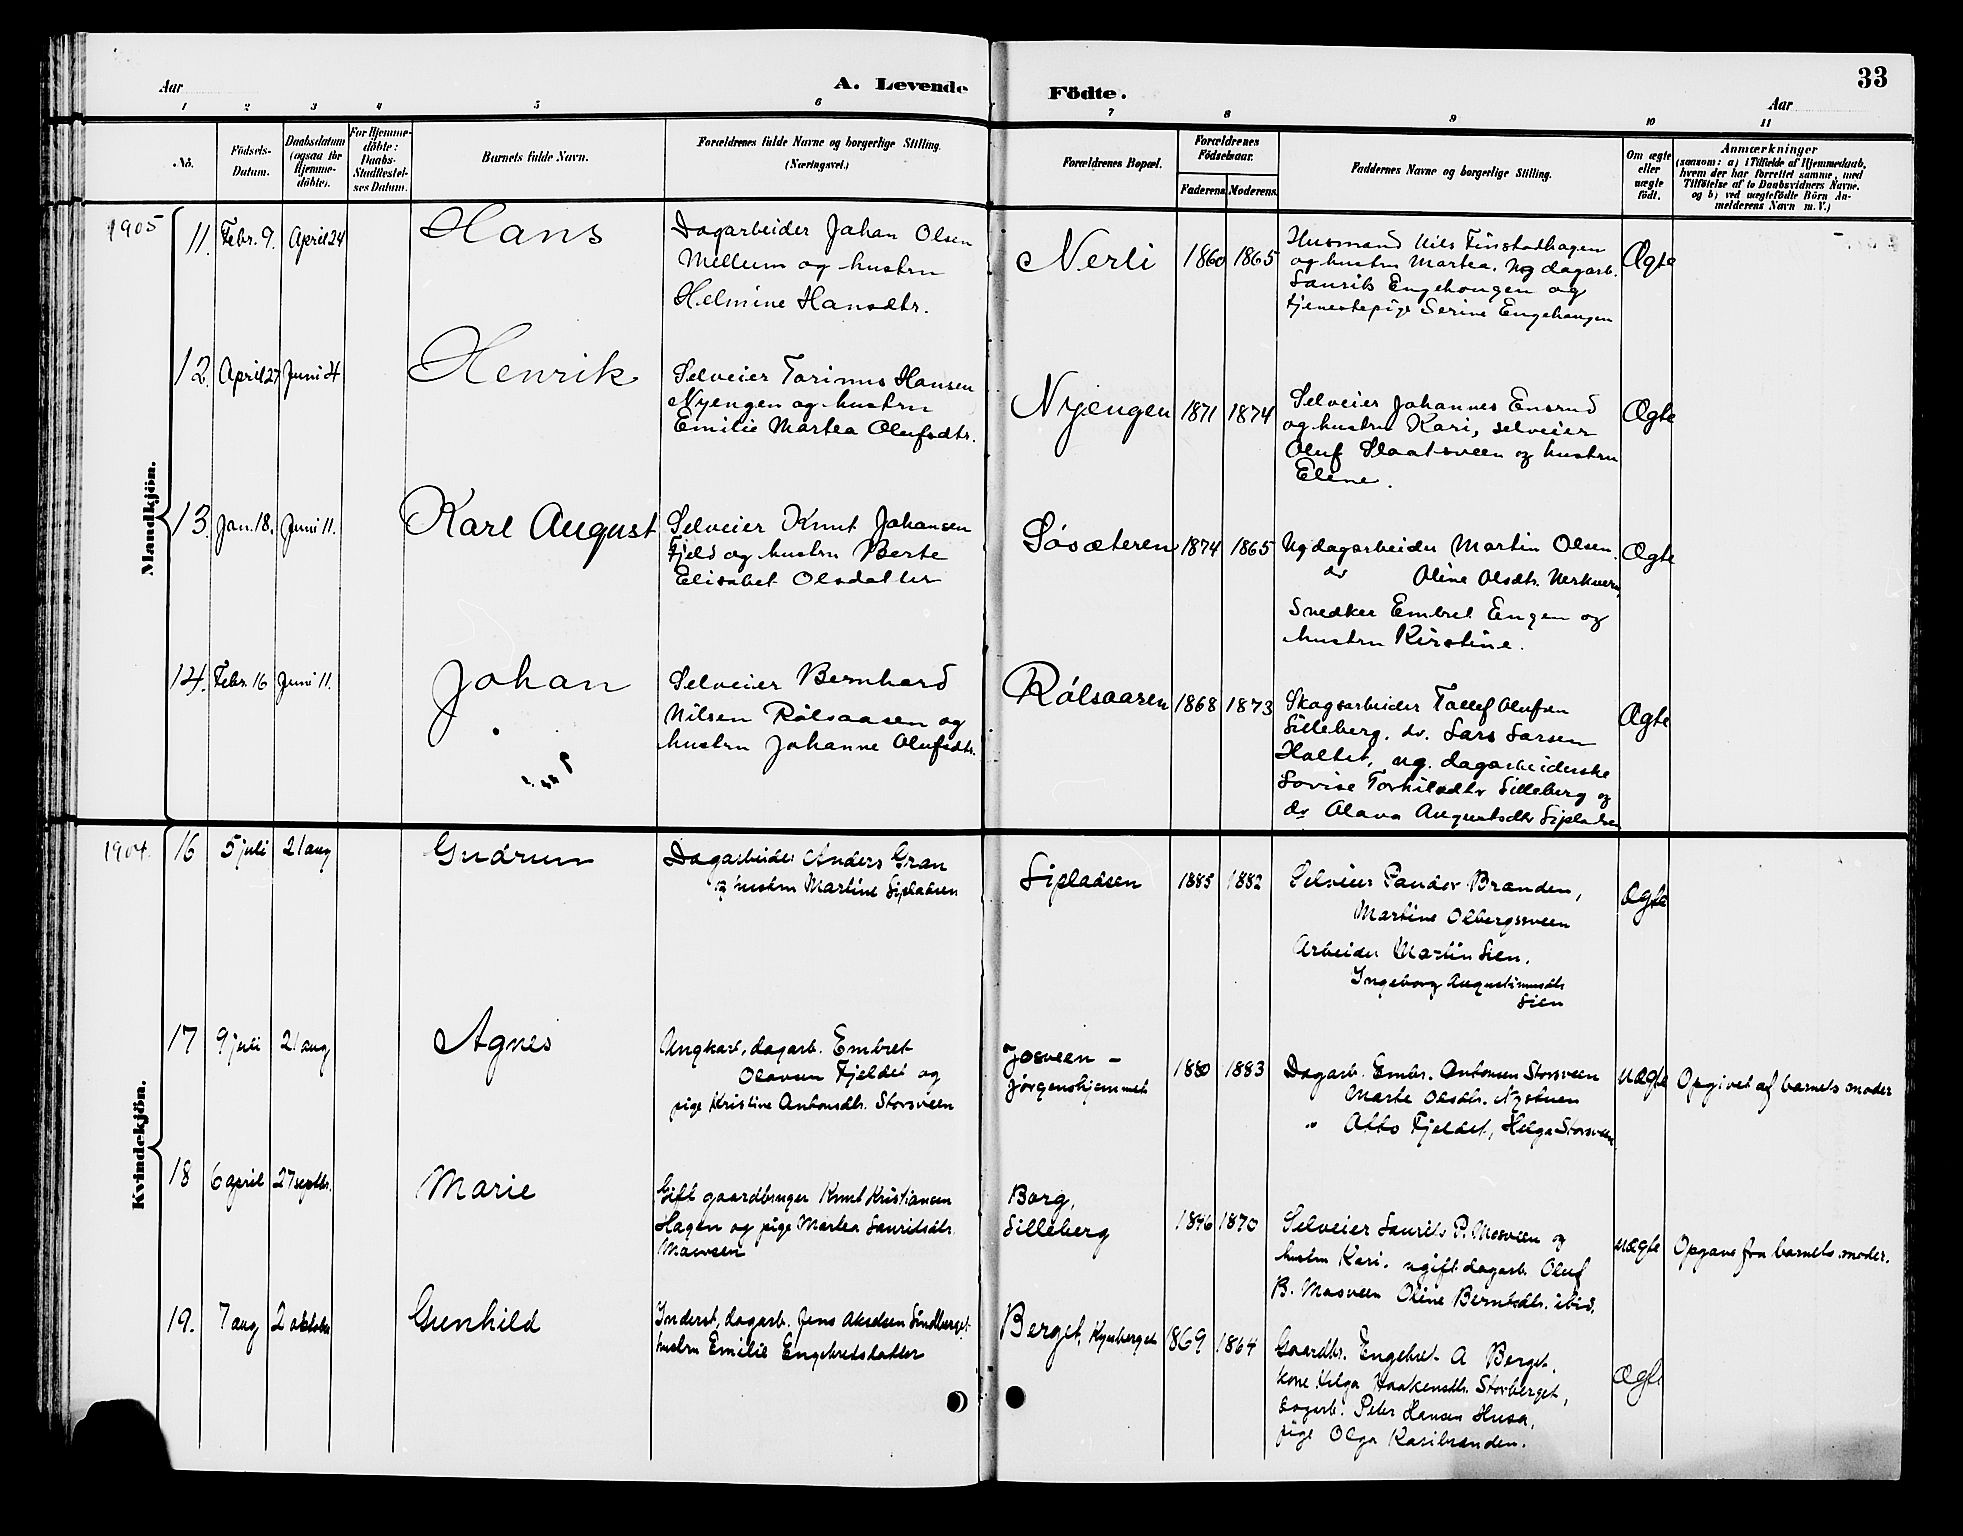 33
A. Levende Födte.
Aar
Aar
1 2 3 4 5 6 7 8 9 10 11
No.
Födsels-
Datum.
Daabsdatum
(ogsaa for
Hjemme-
döbte).
For Hjemme-
döbte:
Daabs-
Stadfæstel-
ses Datum.
Barnets fulde Navn.
Forældrenes fulde Navne og borgerlige Stilling.
(Næringsvei.)
Forældrenes Bopæl.
Forældrenes
Födselsaar.
Faderens.
Moderens.
Faddernes Navne og borgerlige Stilling.
Om ægte
eller
uægte
födt.
Anmærkninger
(saasom: a) i Tilfælde af Hjemmedaab,
hvem der har forrettet samme, med
Tilföielse af to Daabsvidners Navne.
og b) ved uægtefödte Börn An-
melderens Navn m. V.)
Mandkjön.
1905
11. Febr. 9. April 24
Hans
Dagarbeider Johan Olsen
Mellum og hustru
Helmine Hansdtr.
Nerli
1860 1865
Husmand Nils Finstadhagen
og hustru Martea. Ug dagarb.
Laurits Engehaugen og
tjenestepige Serine Engehaugen
Ægte
12. April 27 Juni 4
Henrik
Selveier Torinus Hansen
Nyengen og hustru
Emilie Martea Olufsdtr.
Nyengen
1871 1874
Selveier Johannes Ensrud
og hustru Kari, selveier
Oluf Slaatsveen og hustru
Elene.
Ægte
13. Jan. 18. Juni 11.
Karl August
Selveier Knut Johansen
Fjeld og hustru Berte
Elisabet Olsdatter
Søsæteren
1874 1865
Ug dagarbeider Martin Olsen.
do Oline Olsdtr.
Snedker Embret Engen og
hustru Kirstine.
Ægte
14. Febr. 16 Juni 11.
Johan
Selveier Bernhard
Nilsen Rølsaasen og
hustru Johanne Olufsdtr.
Rølsaasen
1868 1873
Skogsarbeider Tollef Olufsen
Silleberg. do. Lars Larsen
Haltet, ug. dagarbeiderske
Lovise Torkilsdtr Silleberg og
do Olava Augustsdtr Siplassen
Ægte
Kvindekjön.
1904.
16 5 juli 21 aug
Gudrun
Dagarbeider Anders Gran
og hustru Martine Siplassen
Siplassen
1885 1882
Selveier Pander Branden,
Martine Olbergssveen
Arbeider Martin Lien.
Ingeborg Augustinusdtr
Lien
ægte
17 9 juli 21 aug
Agnes
Ungkarl, dagarb. Embret
Olavsen Fjeldet og
pige Kristine Antonsdtr. Storsveen
Josveen –
Jørgenshjemmet
1880 1883
Dagarb. Embr. Antonsen Storsveen
Marte Olsdtr. Nystuen
" Otto Fjeldet, Helga Storsveen
uægte
Opgivet af barnets moder
18 6 april 27 septbr.
Marie
Gift gaardbruger Knut Kristiansen
Hagen og pige Martea Lauridsdtr.
Borg,
Silleberg
1846 1870
Selveier Laurits P. Mosveen og
hustru Kari. ugift dagarb. Oluf
B. Mosveen Oline Berntsdtr. ibid.
uægte
Opgave fra barnets moder.
19. 7 aug 2 oktober
Gunhild
Inderst, dagarb. Jens Akselsen Lindberget
hustru Emilie Engebretsdatter
Berget, Kynberget
1869 1864
Gaardbr. Engebret A Berget.
kone Helga Haakensdtr. Storberget,
Dagarb. Peter Hansen Husa,
pige Olga Karibranden.
ægte